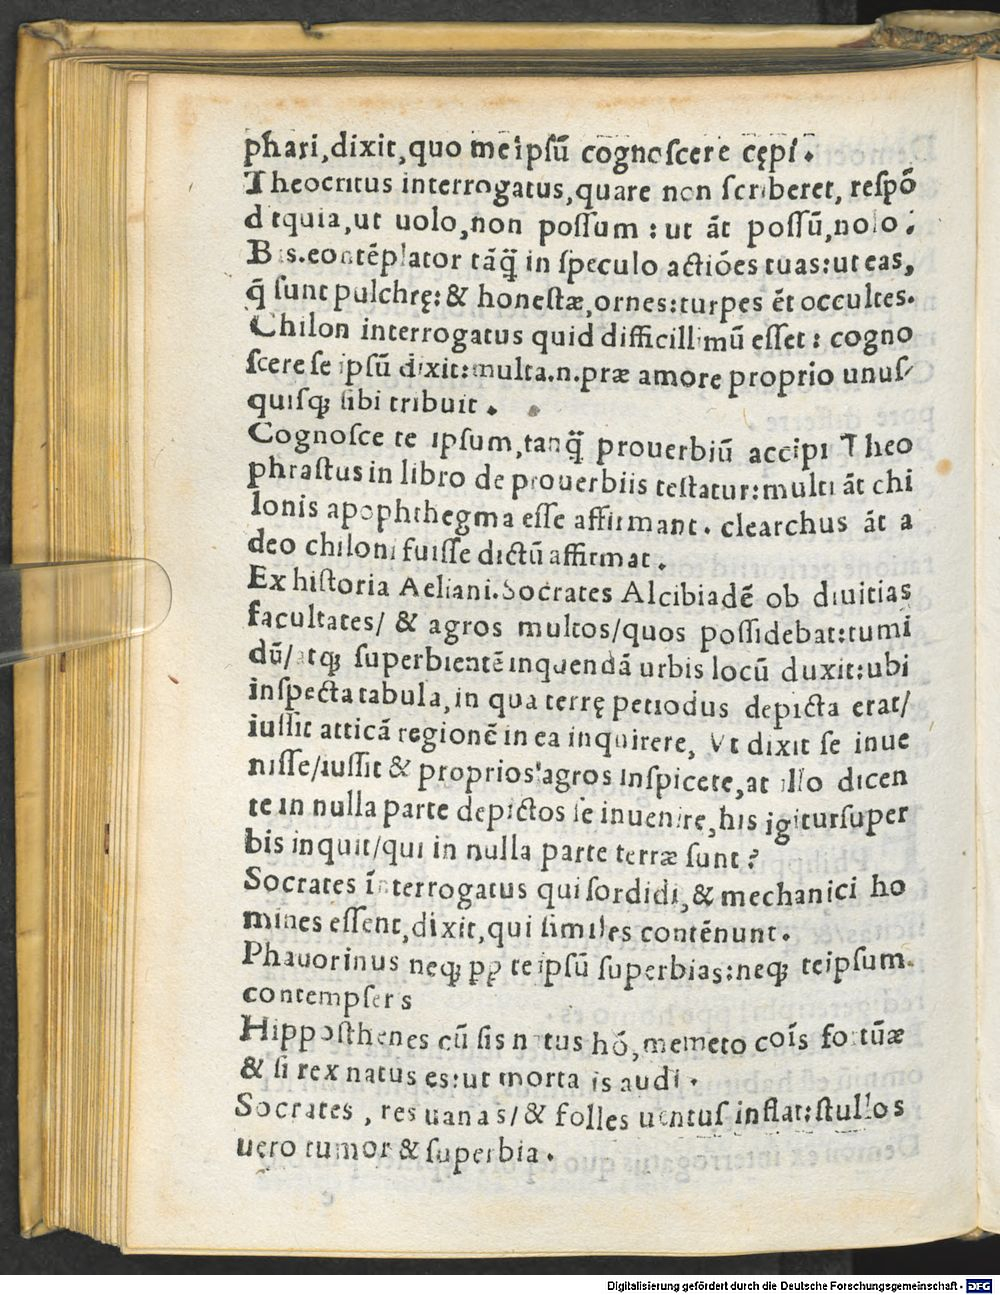 phari,dixit,quo meipsũ cognoscere cępi.
Theocritus interrogatus,quare non scriberet, respõ
d tquia,ut uolo,non possum : ut ãt possũ,nolo.
B s.contẽplator tãq̃ in speculo actiões tuas:ut eas,
q̃ sunt pulchrę:& honestæ,ornes:turpes ẽt occultes.
Chilon interrogatus quid difficillimũ esset: cogno
scere se ipsũ dixit:multa.n.præ amore proprio unus/
quisq; sibi tribuit.
Cognosce te ipsum,tanq̃ prouerbiũ accipi Theo
phrastus in libro de prouerbiis testatur:multi ãt chi
lonis apophthegma esse affirmant. clearchus ãt a
deo chiloni fuisse dictũ affirmat.
Ex historia Aeliani.Socrates Alcibiadẽ ob diuitias
facultates/ & agros multos/quos possidebat:tumi
dũ/atq; superbientẽ inquendã urbis locũ duxit:ubi
inspecta tabula,in qua terrę periodus depicta erat/
iussit atticã regionẽ in ea inquirere, Vt dixit se inue
nisse/iussit & proprios agros inspicere,at illo dicen
te in nulla parte depictos se inuenire,his igitursuper
bis inquit/qui in nulla parte terræ sunt?
Socrates interrogatus qui sordidi,& mechanici ho
mines essent,dixit,qui similes contẽnunt.
Phauorinus neq; pp teipsũ superbias:neq; teipsum.
contempser s
Hipposthenes cũ sis natus hõ,memeto coĩs fortũæ
& si rex natus es:ut morta is audi.
Socrates, res uanas/& folles uentus inflat:stullos
uero tumor & superbia.
Digitalisierung gefördert durch die Deutsche Forschungsgemeinschaft - DFG